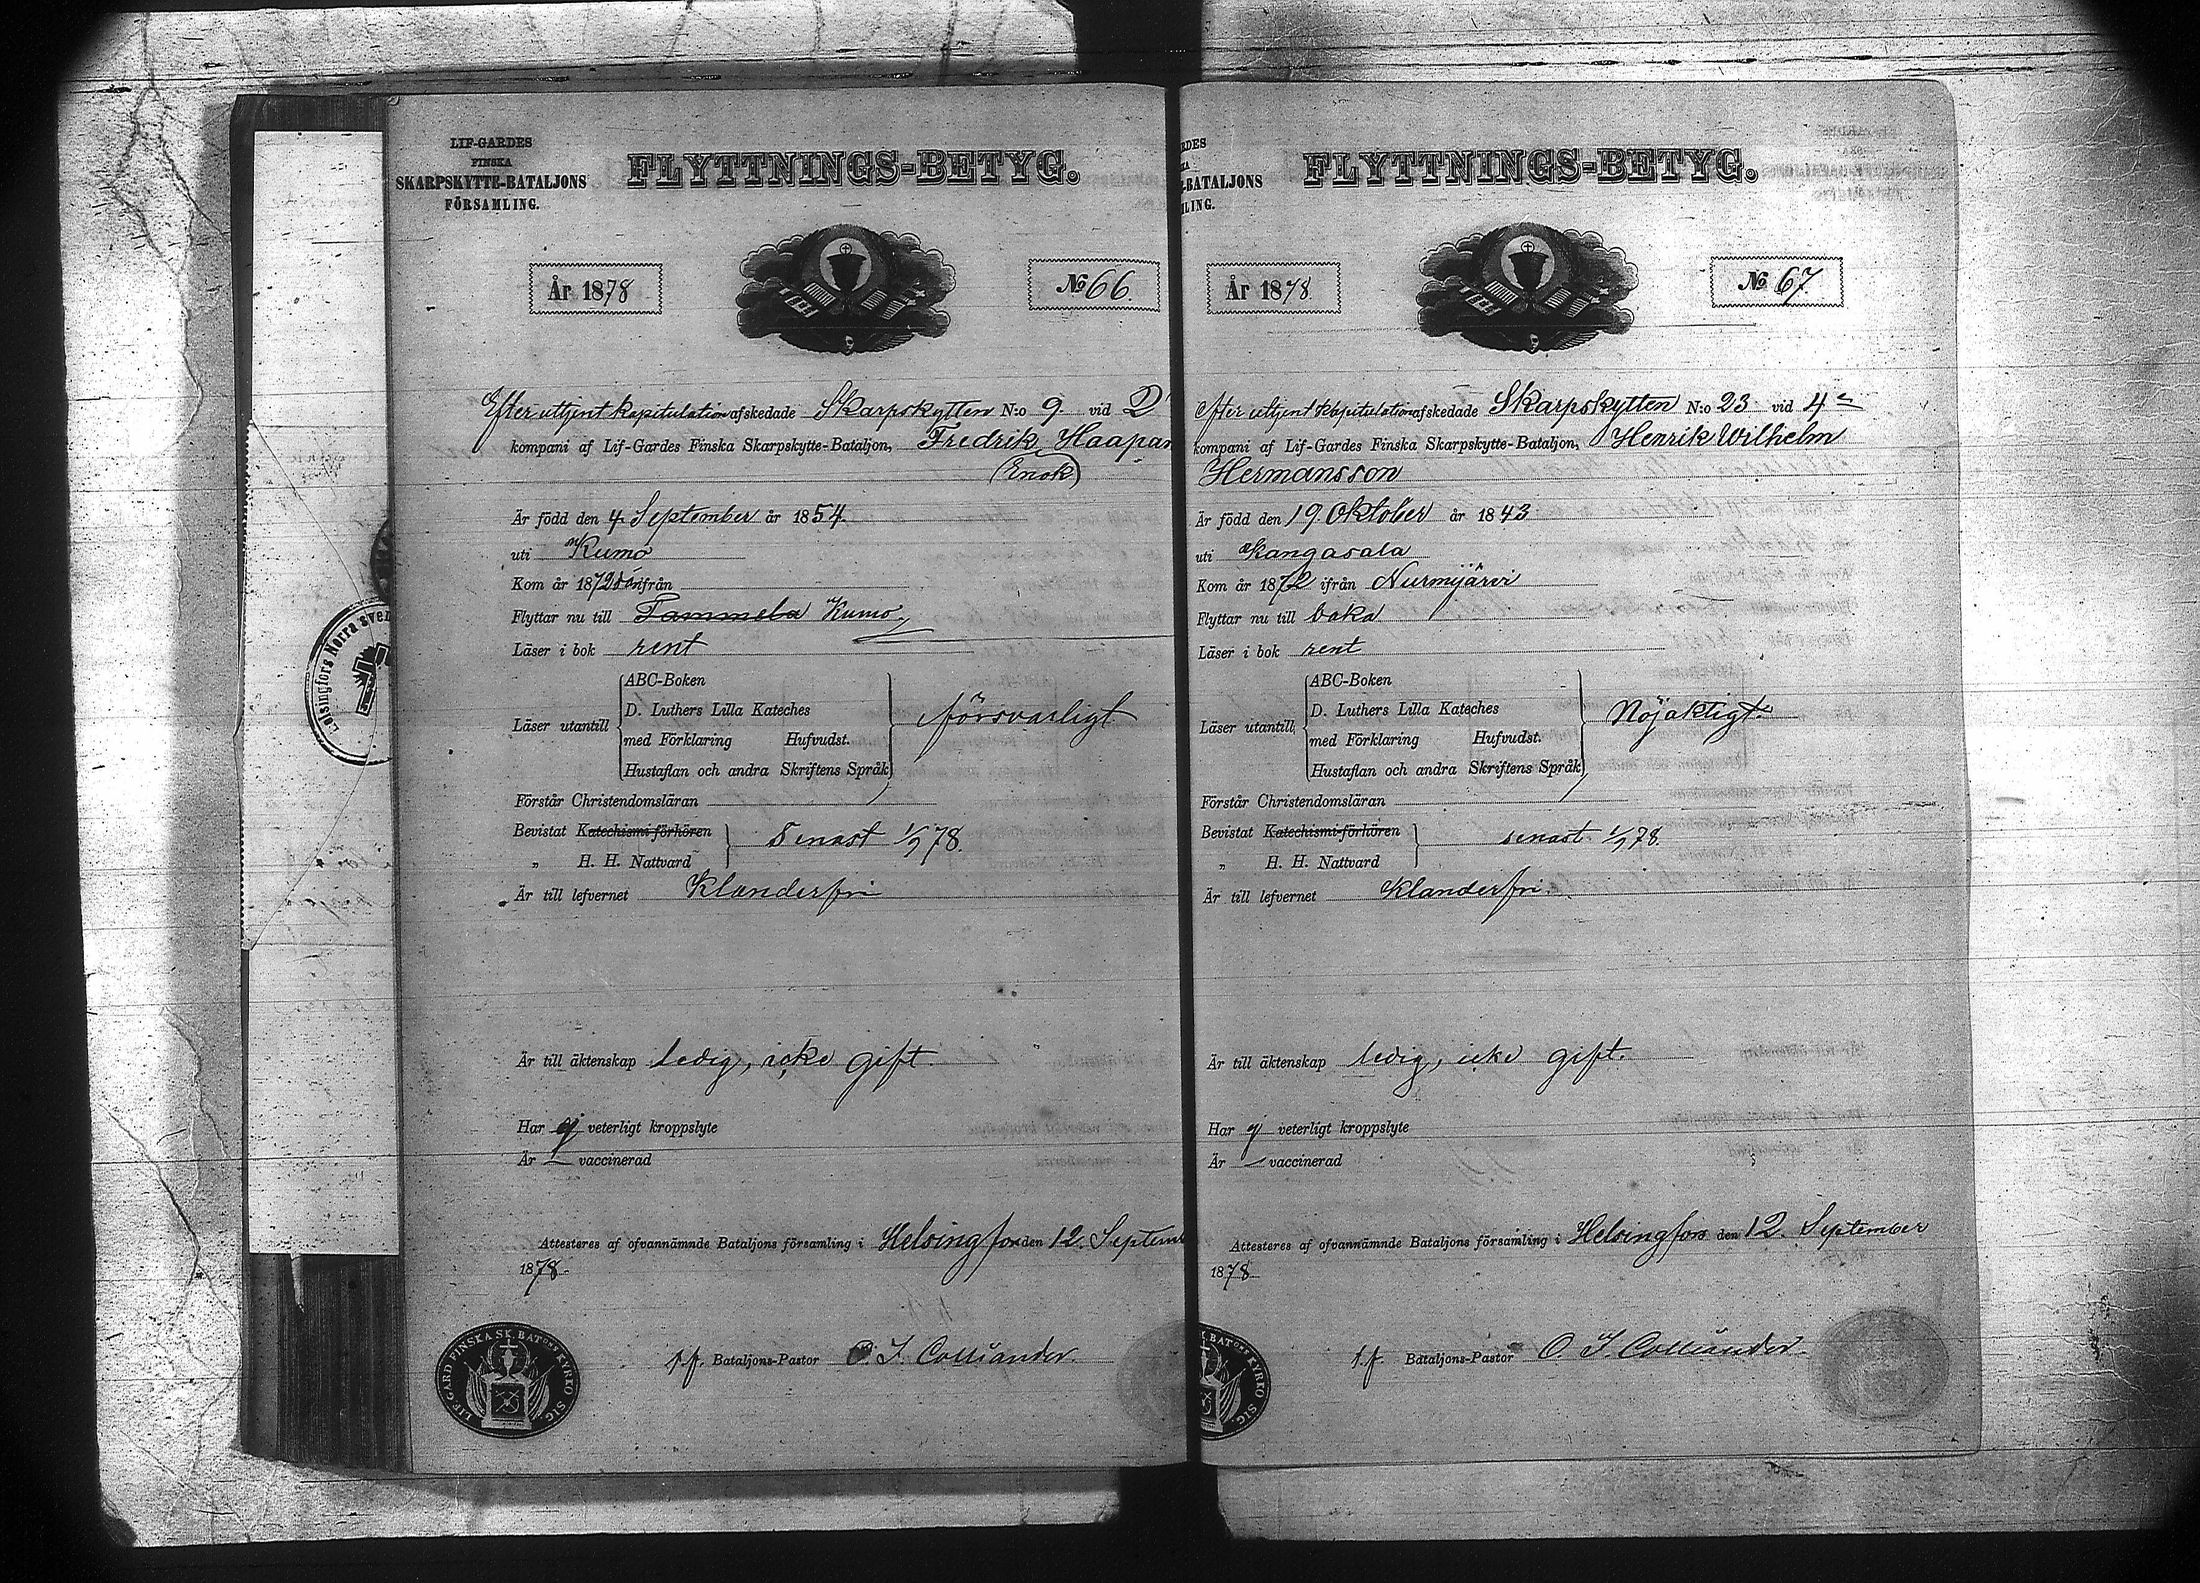 LIF-GARDES
FINSKA
SKARPSKYTTE-BATALJONS
FÖRSAMLING.
FLYTTNINGS-BETYG.
År 1878
No 66.
Efter uttjent kapitulation afskedade Skarpskytten N:o 9 vid 2
kompani af Lif-Gardes Finska Skarpskytte-Bataljon, Fredrik Haapan
(Enok)
Är född den 4 September år 1854.
uti Kumo
Kom år 1872 ifrån
Flyttar nu till Tammela Kumo
Läser i bok rent
Läser utantill
ABC-Boken
D. Luthers Lilla Kateches
med Förklaring Hufvudst.
Hustaflan och andra Skriftens Språk
försvarligt
Förstår Christendomsläran
Bevistat Katechismi-förhören
„ H. H. Nattvard
Senast 1/9 78.
Är till lefvernet Klanderfri
Är till äktenskap ledig, icke gift.
Har ej veterligt kroppslyte
Är — vaccinerad
Attesteras af ofvannämnde Bataljons församling i Helsingfors den 12. Septem
1878.
t.f. Bataljons-Pastor O. I. Colliander.
LIF-GARD. FINSKA SK. BATons KYRKO SIG.
Helsingfors Norra Sve
RDES
KA
-BATALJONS
LING.
FLYTTNINGS-BETYG.
År 1878.
No 67
Efter uttjent kapitulation afskedade Skarpskytten N:o 23 vid 4
kompani af Lif-Gardes Finska Skarpskytte-Bataljon, Henrik Wilhelm
Hermansson
Är född den 19 Oktober år 1843
uti Kangasala
Kom år 1872 ifrån Nurmijärvi
Flyttar nu till
Läser i bok rent
Läser utantill
ABC-Boken
D. Luthers Lilla Kateches
med Förklaring Hufvudst.
Hustaflan och andra Skriftens Språk
Nöjaktigt.
Förstår Christendomsläran
Bevistat Katechismi-förhören
„ H. H. Nattvard
senast 1/9 78.
Är till lefvernet Klanderfri.
Är till äktenskap ledig, icke gift.
Har ej veterligt kroppslyte
Är — vaccinerad
Attesteras af ofvannämnde Bataljons församling i Helsingfors den 12. September
1878
t.f. Bataljons-Pastor O. I. Colliander.
BATons KYRKO SIG.